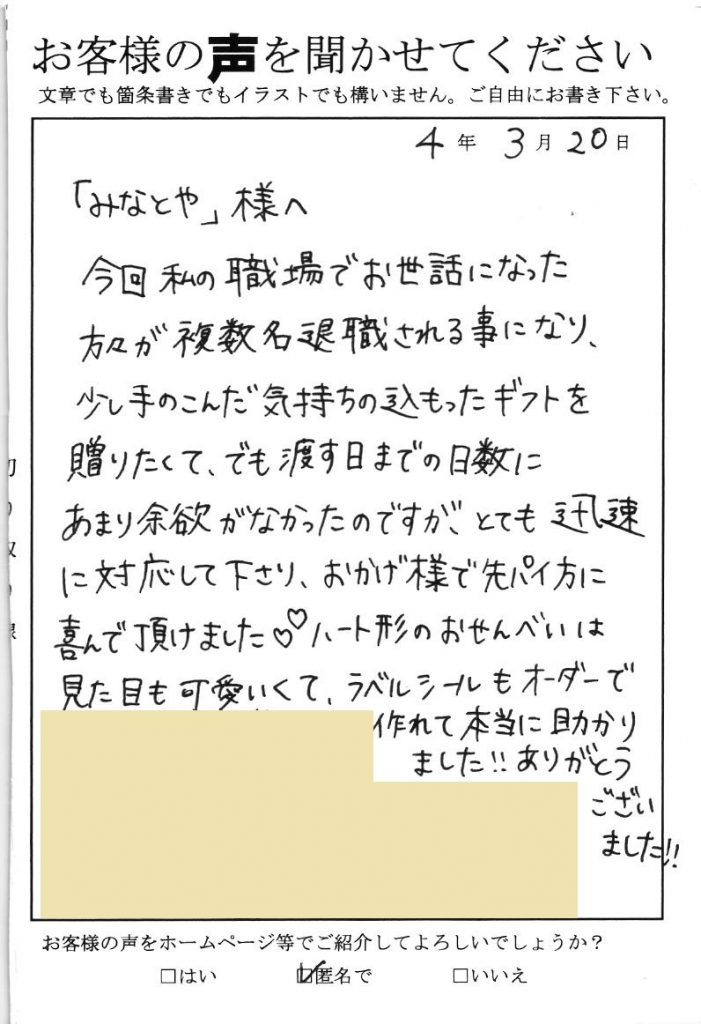 お客様の声を聞かせてください
文章でも箇条書きでもイラストでも構いません。ご自由にお書き下さい。
4年3月20日
「みなとや」様へ
今回私の職場でお世話になった
方々が複数名退職される事になり、
少し手のこんだ気持ちの込もったギフトを
贈りたくて、でも渡す日までの日数に
あまり余欲がなかったのですが、とても迅速
に対応して下さり、おかげ様で先パイ方に
喜んで頂けました♡♡ハート形のおせんべいは
見た目も可愛いくて、ラベルシールもオーダーで
作れて本当に助かり
ました!!ありがとう
ござい
ました!!
お客様の声をホームページ等でご紹介してよろしいでしょうか？
□はい ☑匿名で □いいえ